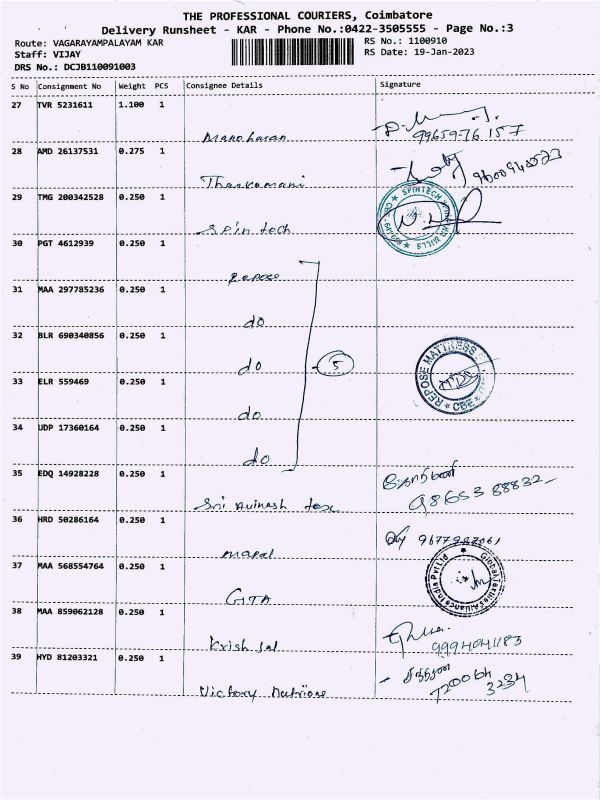 THE PROFESSIONAL COURIERS, Coimbatore
Delivery Runsheet - KAR - Phone No.:0422-3505555 - Page No.:3
Route: VAGARAYAMPALAYAM KAR
RS No.: 1100910
Staff: VIJAY
RS Date: 19-Jan-2023
DRS No.: DCJB110091003
S No Consignment No Weight PCS Consignee Details Signature
27 TVR 5231611 1.100 1
Manoharan 99659-76 157
28 AMD 26137531 0.275 1
Thankamani
29 TMG 200342528 0.250 1
Spin tech
SPINTECH MILLS
30 PGT 4612939 0.250 1
Repose
31 MAA 297785236 0.250 1
do
32 BLR 690340856 0.250 1
do 5
REPOSE MATTRESS CBE
33 ELR 559469 0.250 1
do
34 UDP 17360164 0.250 1
do
35 EDQ 14928228 0.250 1
Sri Avinash tex 98653 88832
36 HRD 50286164 0.250 1
mapal
37 MAA 568554764 0.250 1
GTA
Global Textiles Alliance India Pvt Ltd
38 MAA 859062128 0.250 1
Krish
39 HYD 81203321 0.250 1
Victory
72006h
3234